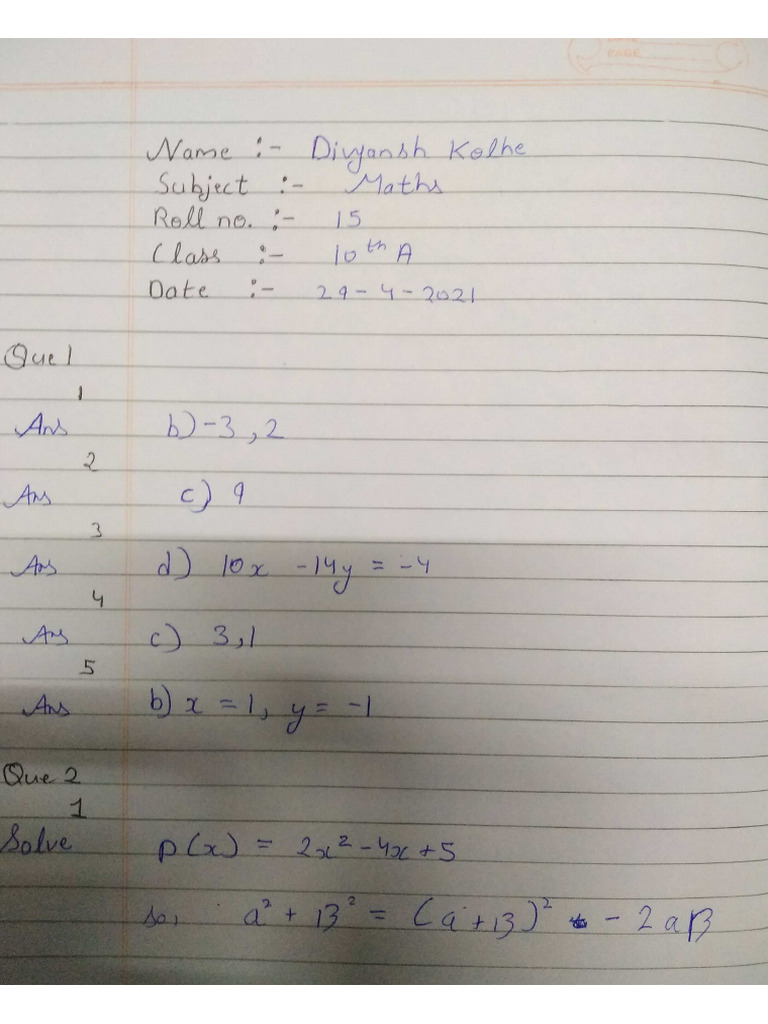 PAGE
Name :- Divyansh Kolhe
Subject :- Maths
Roll no. :- 15
Class :- 10th A
Date :- 29-4-2021
Que 1
1
Ans b) -3, 2
2
Ans c) 9
3
Ans d) 10x - 14y = -4
4
Ans c) 3,1
5
Ans b) x = 1, y = -1
Que 2
1
Solve p(x) = 2x² - 4x + 5
so, a² + β² = (a + β)² - 2aβ